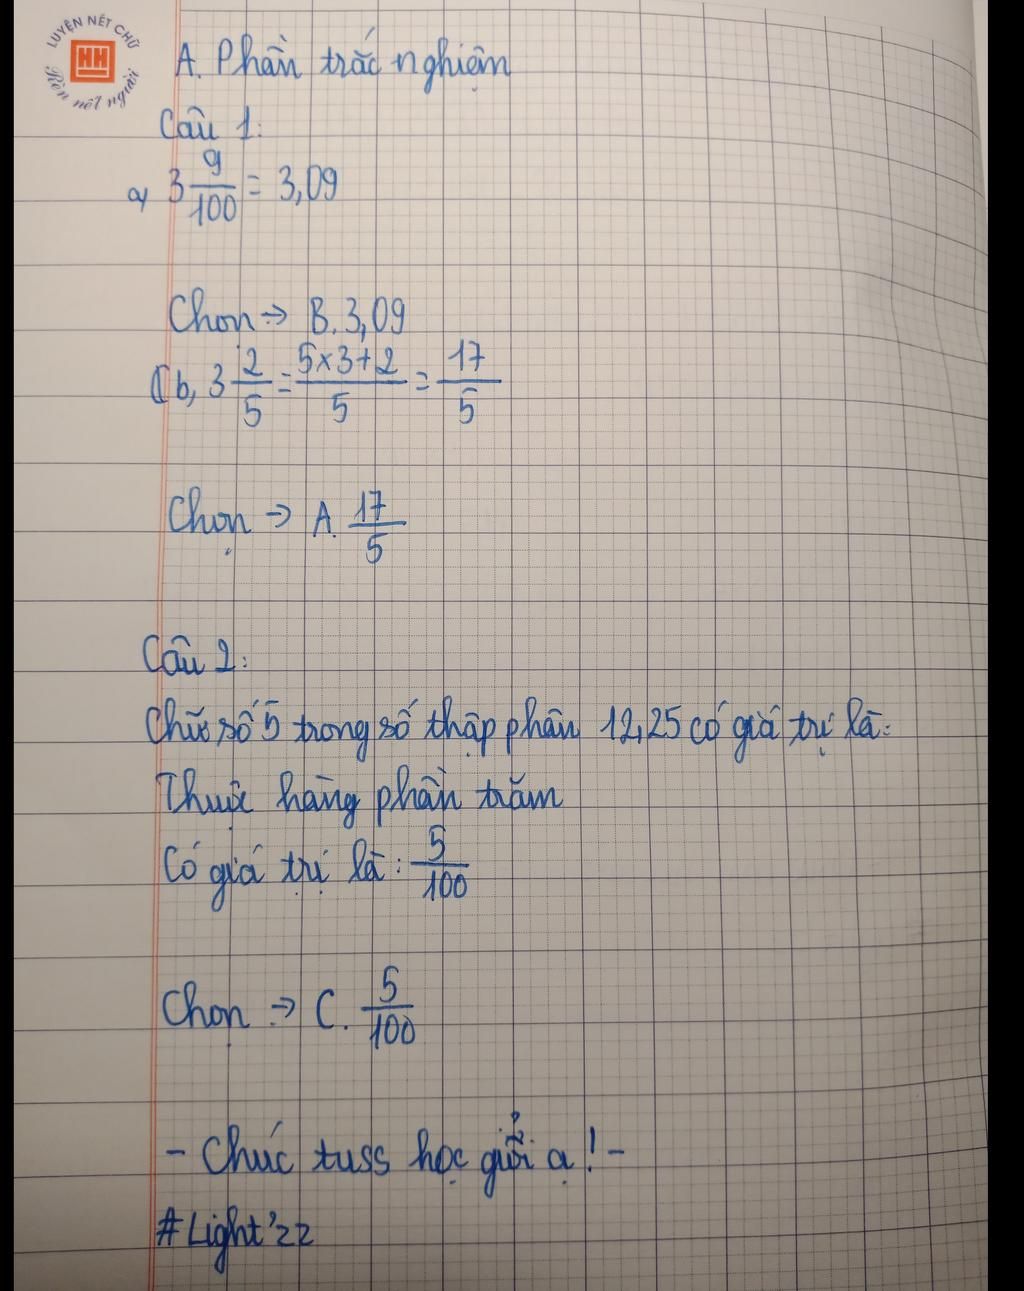 LUYỆN NÉT CHỮ
HH
Rèn nết người
A. Phần trắc nghiệm
Câu 1:
a, 3 9/100 = 3,09
Chọn → B. 3,09
b, 3 2/5 = 5×3+2/5 = 17/5
Chọn → A. 17/5
Câu 2:
Chữ số 5 trong số thập phân 12,25 có giá trị là:
Thuộc hàng phần trăm
Có giá trị là: 5/100
Chọn → C. 5/100
- Chúc tuss học giỏi ạ! -
#Light'22